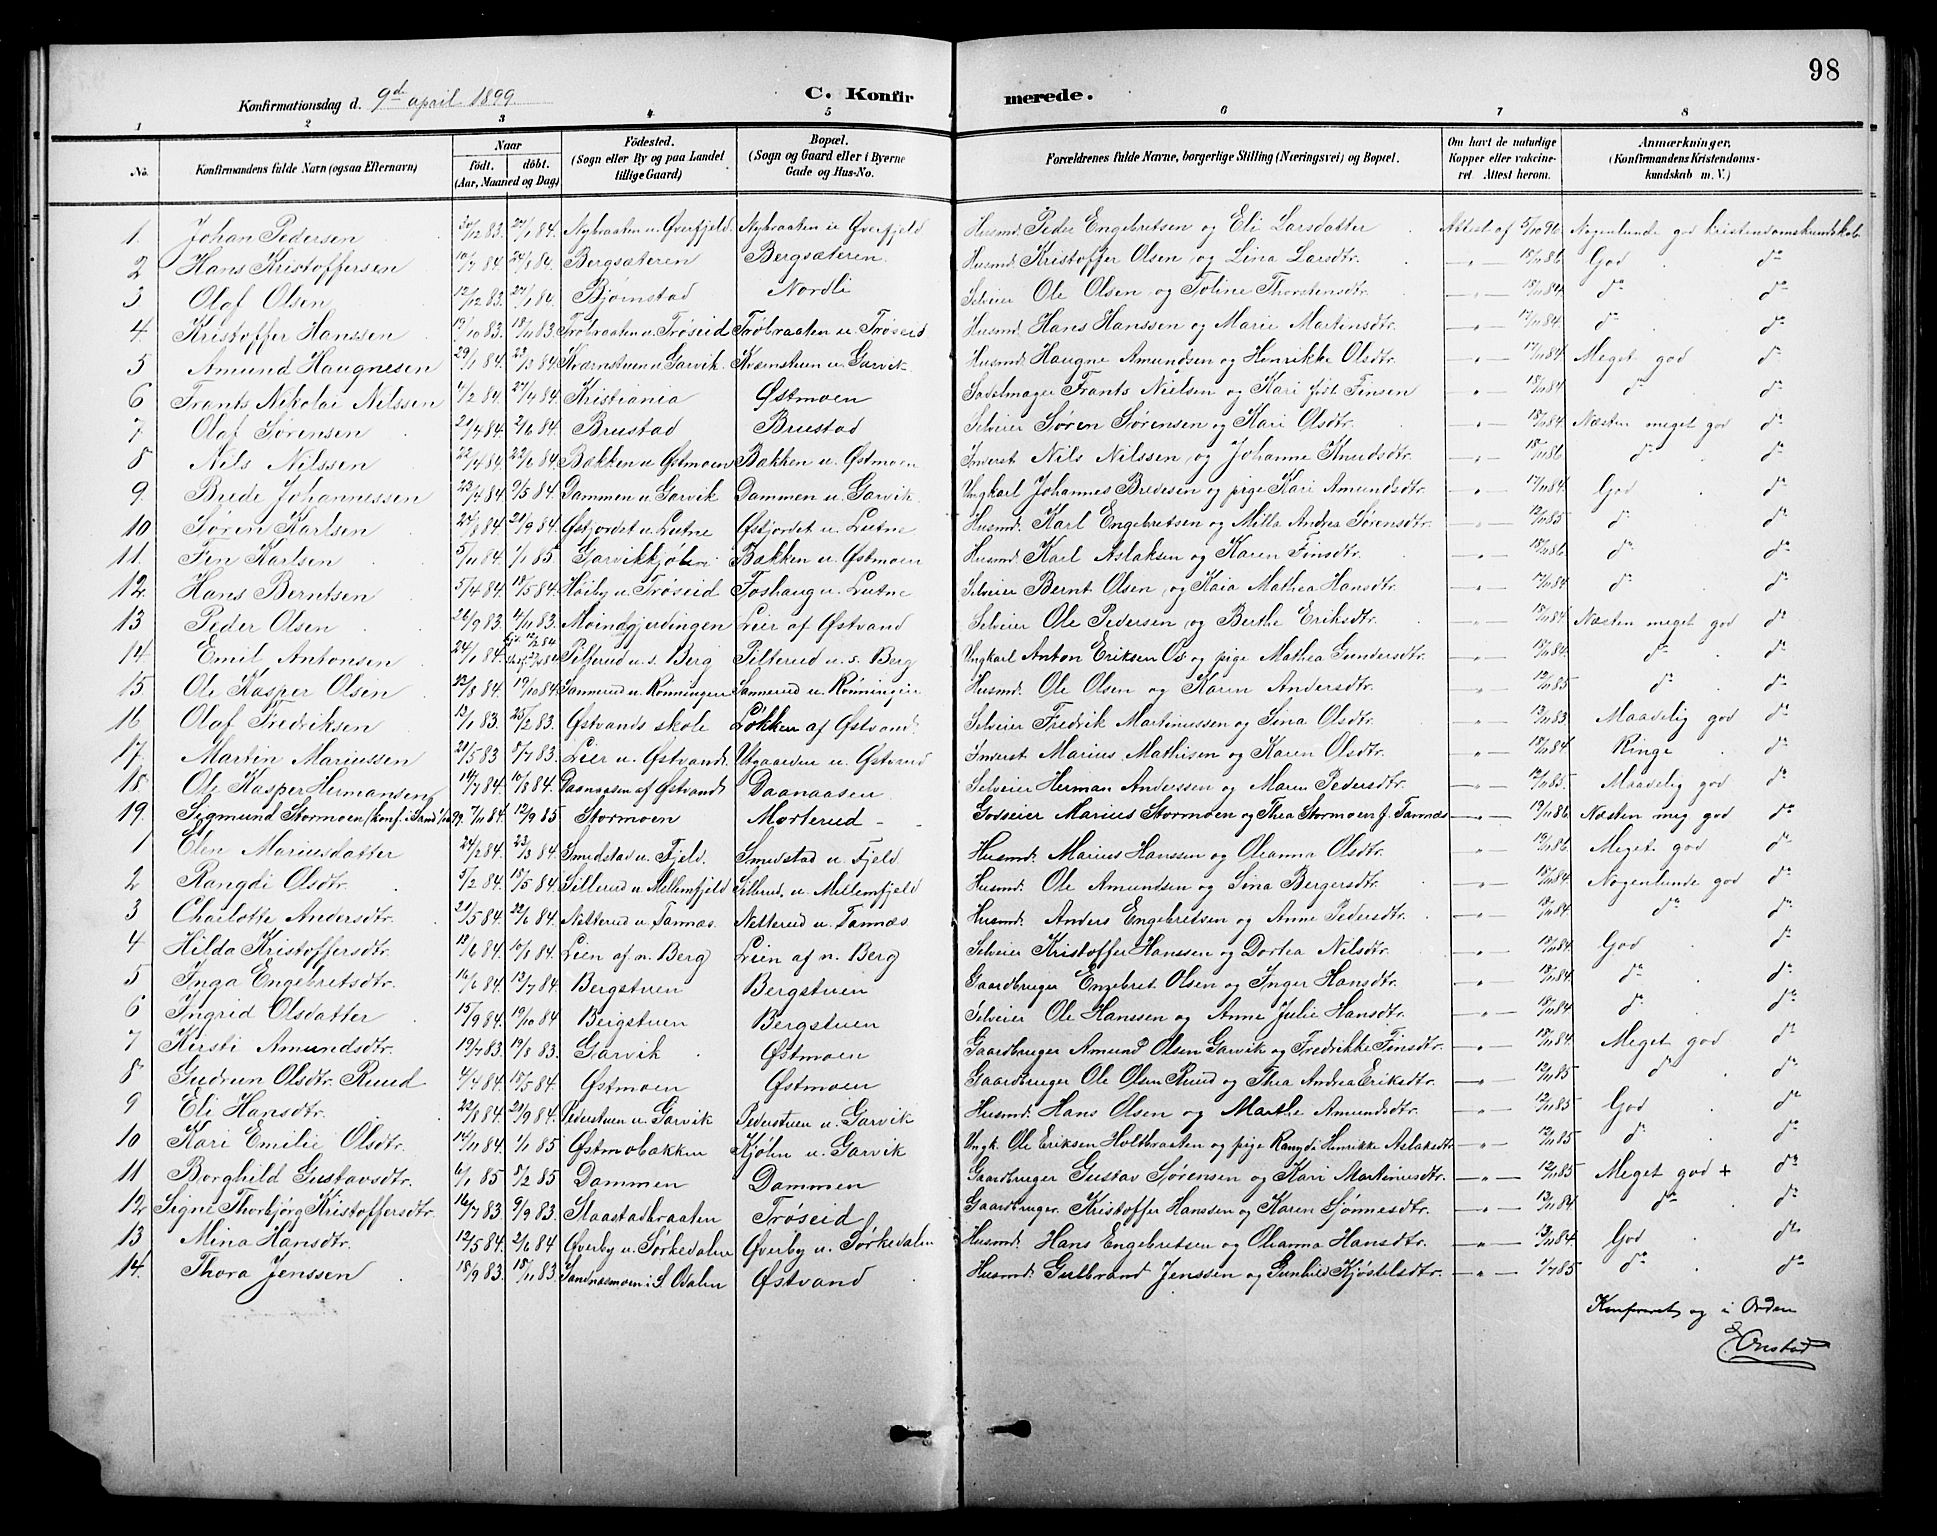 98
Konfirmationsdag d. 9de april 1899 C. Konfirmerede.
1 2 3 4 5 6 7 8
No. Konfirmandens fulde Navn (ogsaa Efternavn) Naar født. døbt. (Aar, Maaned og Dag) Fødested. (Sogn eller By og paa Landet tillige Gaard) Bopæl. (Sogn og Gaard eller i Byerne Gade og Hus-No. Forældrenes fulde Navne, borgerlige Stilling (Næringsvei) og Bopæl. Om havt de naturlige Kopper eller vakcineret. Attest herom. Anmærkninger, (Konfirmandens Kristendomskundskab m. V.)
1. Johan Pedersen 30/12 83. 27/1 84. Nybraaten u. Øverfjeld. Nybraaten u Øverfjeld Husmd. Peder Engebretsen og Eli Larsdatter Attest af 5/10 92 Nogenlunde god kristendomskundskab
2 Hans Kristoffersen 10/7 84 24/8 84. Bergsæteren Bergsæteren Husmd. Kristoffer Olsen og Lina Larsdtr. — " — 15/7 86. God do
3 Olaf Olsen 12/12 83. 27/1 84. Bjørnstad Nordli Selveier Ole Olsen og Toline Thorstensdtr. — " — 18/11 84. do do
4 Kristoffer Hanssen 19/10 83. 18/11 83. Trøbraaten u. Trøseid Trøbraaten u. Trøseid Husmd. Hans Hanssen og Marie Martinsdtr. — " — 17/11 84 do do
5 Amund Haugnesen 29/1 84 23/3 84 Kværnstuen u Garvik. Kværnstuen u Garvik. Husmd. Haugne Amundsen og Henrikke Olsdtr. — " — 17/11 84 Meget god do
6 Frants Nikolai Nilssen 4/2 84. 27/4 84. Kristiania Østmoen Sadelmager Frants Nielsen og Kari født Finsen — " — 18/11 84 do do
7 Olaf Sørensen 20/4 84. 2/6 84. Brustad Brustad Selveier Søren Sørensen og Kari Olsdtr. — " — 18/11 84. Næsten meget god do
8 Nils Nilssen 22/4 84. 22/6 84. Bakken u Østmoen Bakken u. Østmoen Inderst Nils Nilssen og Johanne Knudsdtr. — " — 15/11 86 do do
9. Brede Johannessen 23/4 84 9/5 84. Dammen u Garvik Dammen u Garvik. Ungkarl Johannes Bredesen og pige Kari Amundsdtr. — " — 17/11 84. God do
10 Søren Karlsen 24/8 84. 21/9 84. Østjordet u. Lutne Østjordet u. Lutne Husmd. Karl Engebretsen og Milla Andrea Sørensdtr. — " — 12/11 85 do do
11. Fin Karlsen 5/11 84. 1/1 85. Garvikkjølen Bakken u. Østmoen Husmd. Karl Aslaksen og Karen Finsdtr. — " — 15/11 86. do do
12. Hans Berntsen 5/4 84. 18/5 84. Høiby u. Trøseid Foshaug u. Lutne Selveier Bernt Olsen og Kaia Mathea Hansdtr. — " — 17/11 84. do do
13 Peder Olsen 26/9 83. 11/11 83. Moindgjerdingen Lier af Østvand Selveier Ole Pedersen og Berthe Eriksdtr. — " — 18/11 84 Næsten meget god do
14. Emil Antonsen 24/1 84. Pilterud u. s. Berg Pilterud u. s. Berg Ungkarl Anton Eriksen Os og pige Mathea Gundersdtr. — " — 18/11 84. do do
15 Ole Kasper Olsen 22/8 84. 19/10 84. Sannerud u. Rønningen Sannerud u. Rønningen Husmd. Ole Olsen og Karen Andersdtr. — " — 12/11 85 do do
16 Olaf Fredriksen 12/1 83. 25/2 83. Østvands skole Løkken af Østvand. Selveier Fredrik Martinussen og Sina Olsdtr. — " — 13/11 83. Maadelig god do
17. Martin Mariussen 21/5 83 8/7 83. Lier u. Østvand. Utgaarden u. Østvand Inderst Marius Mathisen og Karen Olsdtr. — " — 18/11 84. Ringe do
18. Ole Kasper Hermansen 14/7 84. 10/8 84. Daanaasen af Østvand Daanaasen Selveier Herman Anderssen og Maren Pedersdtr. — " — 12/11 85. Maadelig god do
19. Sigmund Stormoen 7/11 84. 12/9 85 Stormoen Morterud - - Godseier Marius Stormoen og Thea Stormoen f. Tannæs — " — 19/11 86 Næsten meg god do
1 Elen Mariusdatter 24/2 84. 23/3 84. Smedstad u. Fjeld. Smedstad u. Fjeld. Husmd. Marius Hanssen og Oleanna Olsdtr. — " — 19/11 86. Meget god do
2 Rangdi Olsdtr. 5/2 84. 18/5 84. Sillerud u Mellemfjeld Sillerud. u. Mellemfjeld Husmd. Ole Amundsen og Sina Bergersdtr. — " — 18/11 84. Nogenlunde god do
3 Charlotte Andersdtr. 21/5 84. 22/6 84. Netterud u. Tannæs. Netterud u. Tannæs Husmd. Anders Engebretsen og Anne Pedersdtr. — " — 18/11 84. do do
4 Hilda Kristoffersdtr. 18/6 84. 10/8 84. Lien af n. Berg Lien af n. Berg Selveier Kristoffer Hanssen og Dortea Nilsdtr. — " — 18/11 84. God do
5 Inga Engebretsdtr. 16/6 84. 13/7 84. Bergstuen Bergstuen Gaardbruger Engebret Olsen og Inger Hansdtr. — " — 18/11 84. do do
6 Ingrid Olsdatter 15/9 84. 19/10 84 Bergstuen Bergstuen Selveier Ole Hanssen og Anne Julie Hansdtr. — " — 18/11 84. do do
7 Kirsti Amundsdtr. 19/7 83. 19/8 83. Garvik Østmoen Gaardbruger Amund Olsen Garvik og Fredrikke Finsdtr. — " — 18/11 84. Meget god do
8 Gudrun Olsdtr. Ruud 4/4 84. 18/5 84. Østmoen Østmoen Gaardbruger Ole Olsen Ruud og Thea Andrea Eriksdtr. — " — 12/11 85 do do
9 Eli Hansdtr. 22/8 84. 21/9 84. Pederstuen u. Garvik Pederstuen u. Garvik Husmd. Hans Olsen og Marthe Amundsdtr. — " — 12/11 85 God do
10 Kari Emilie Olsdtr. 14/11 84. 1/1 85 Østmobakken Kjølen u. Garvik Ungk. Ole Eriksen Holtbraaten og pige Rangdi Henrikke Aslaksdtr — " — 12/11 85. do do
11 Borghild Gustavsdtr. 6/1 85 8/2 85 Dammen Dammen Gaardbruger Gustav Sørensen og Kari Martiniusdtr. — " — 12/11 85 Meget god + do
12 Signe Thorbjørg Kristoffersdtr. 16/7 83 9/9 83. Staastadbraaten Trøseid Gaardbruger. Kristoffer Hanssen og Karen Sønnesdtr. — " — 13/11 84 do do
13 Mina Hansdtr. 12/5 84. 2/6 84 Øverby u. Sørkedalen Øverby u. Sørkedalen Husmd. Hans Engebretsen og Oleanna Hansdtr. — " — 13/11 84. God do
14. Thora Jenssen 18/9 83. 18/11 83. Sandnæsmoen i S. Odalen Østvand Husmd. Gulbrand Jenssen og Gunhild Kjøstelsdtr. — " — 1/7 85 do do
Konfereret og i Orden
Onstad